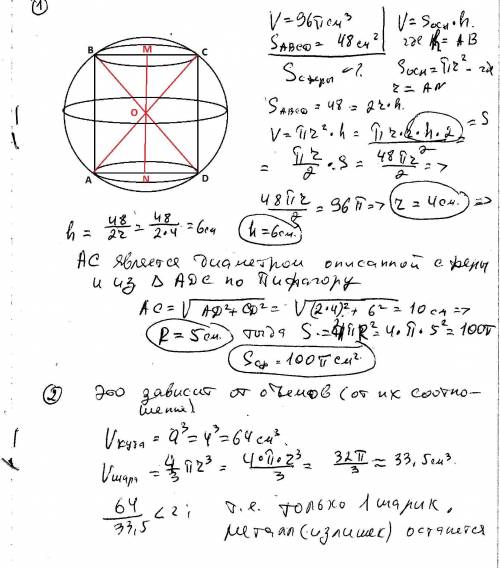 ①
B M C
O
A N D
V = 96π см³
S_ABCD = 48 см²
S сферы - ?
V = Sосн · h.
где h = AB
Sосн = πr² - где
r = AN
S_ABCD = 48 = 2r · h.
V = πr² · h = πr · r · h · 2 / 2 = S
= πr/2 · S = 48πr/2 =>
48πr/2 = 96π => r = 4см. =>
h = 48/2r = 48/2·4 = 6см h = 6см.
AC является диаметром описанной сферы
и из Δ ADC по Пифагору
AC = √AD² + CD² = √(2·4)² + 6² = 10 см =>
R = 5см. тогда S = 4πR² = 4·π·5² = 100π
Sсф = 100π см².
② Это зависит от объемов (от их соотно-
шения)
Vкуба = a³ = 4³ = 64 см³.
Vшара = 4/3 πr³ = 4·π·2³/3 = 32π/3 ≈ 33,5см³.
64/33,5 < 2; т.е. только 1 шарик,
металл (излишек) останется